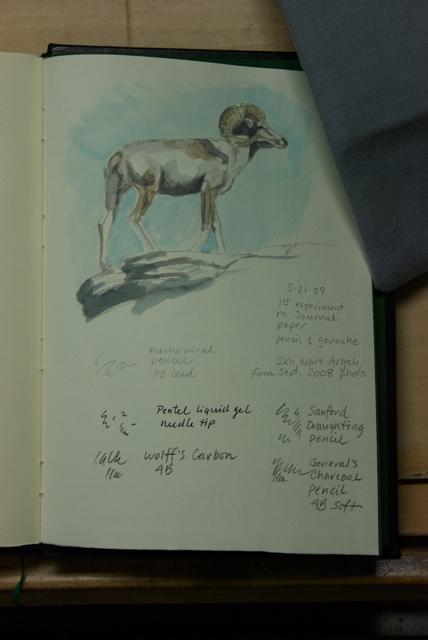 5-21-09
1st experiment
on Journal
paper
pencil & gouache
Ikh Nart Argali
from Sept. 2008 photo
mechanical
pencil
HB lead
Pentel liquid gel
needle tip
Sanford
Draughting
pencil
Wolff's Carbon
4B
General's
Charcoal
pencil
4B soft